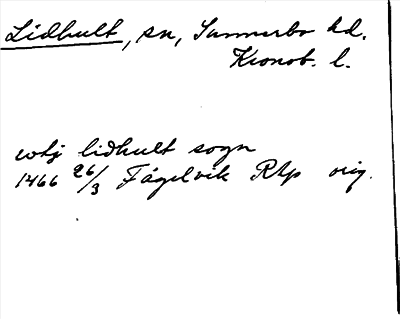 Lidhult, sn, Sunnerbo hd.
Kronob. l.
wtj lidhult sogn
1466 26/3 Fågelvik RAp orig.